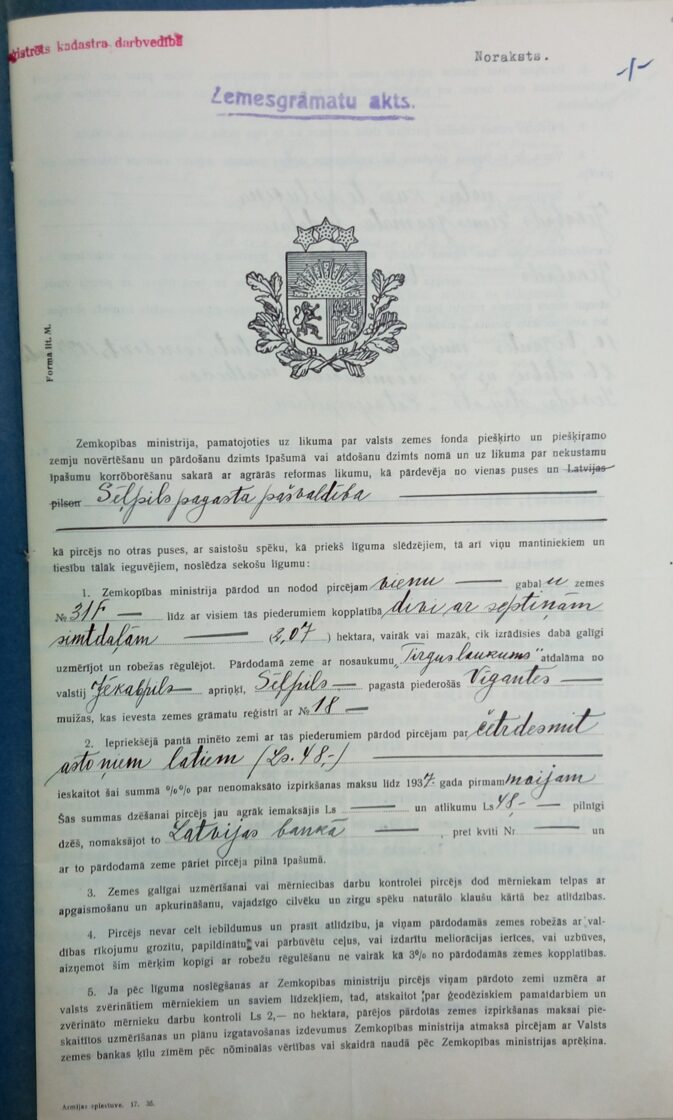 reģistrēts kadastra darbvedībā
Noraksts.
-1-
Zemesgrāmatu akts.
Forma lit. M.
Zemkopības ministrija, pamatojoties uz likuma par valsts zemes fonda piešķirto un piešķiŗamo
zemju novērtēšanu un pārdošanu dzimts īpašumā vai atdošanu dzimts nomā un uz likuma par nekustamu
īpašumu korroborēšanu sakarā ar agrārās reformas likumu, kā pārdevēja no vienas puses un Latvijas
pilson Sēļpils pagasta pašvaldība
kā pircējs no otras puses, ar saistošu spēku, kā priekš līguma slēdzējiem, tā arī viņu mantiniekiem un
tiesību tālāk ieguvējiem, noslēdza sekošu līgumu:
1. Zemkopības ministrija pārdod un nodod pircējam vienu — gabalu zemes
№ 31F — līdz ar visiem tās piederumiem kopplatībā divi ar septiņām
simtdaļām — (2,07) hektara, vairāk vai mazāk, cik izrādīsies dabā galīgi
uzmērījot un robežas rēgulējot. Pārdodamā zeme ar nosaukumu „Tirguslaukums" atdalāma no
valstij Jēkabpils — apriņķī, Sēļpils — pagastā piederošās Vīgantes —
muižas, kas ievesta zemes grāmatu reģistrī ar № 18 —
2. Iepriekšējā pantā minēto zemi ar tās piederumiem pārdod pircējam par četrdesmit
astoņiem latiem (Ls. 48,-) —
ieskaitot šai summā %% par nenomaksāto izpirkšanas maksu līdz 1937. gada pirmam maijam
Šās summas dzēšanai pircējs jau agrāk iemaksājis Ls — un atlikumu Ls 48,- — pilnīgi
dzēš, nomaksājot to Latvijas bankā — , pret kvīti Nr — un
ar to pārdodamā zeme pāriet pircēja pilnā īpašumā.
3. Zemes galīgai uzmērīšanai vai mērniecības darbu kontrolei pircējs dod mērniekam telpas ar
apgaismošanu un apkurināšanu, vajadzīgo cilvēku un zirgu spēku naturālo klaušu kārtā bez atlīdzības.
4. Pircējs nevar celt iebildumus un prasīt atlīdzību, ja viņam pārdodamās zemes robežās ar val-
dības rīkojumu grozītu, papildinātu vai pārbūvētu ceļus, vai izdarītu meliorācijas ierīces, vai uzbūves,
aizņemot šim mērķim kopīgi ar robežu rēgulēšanu ne vairāk kā 3% no pārdodamās zemes kopplatības.
5. Ja pēc līguma noslēgšanas ar Zemkopības ministriju pircējs viņam pārdoto zemi uzmēra ar
valsts zvērinātiem mērniekiem un saviem līdzekļiem, tad, atskaitot par ģeodēziskiem pamatdarbiem un
zvērināto mērnieku darbu kontroli Ls 2,— no hektara, pārējos pārdotās zemes izpirkšanas maksai pie-
skaitītos uzmērīšanas un plānu izgatavošanas izdevumus Zemkopības ministrija atmaksā pircējam ar Valsts
zemes bankas ķīlu zīmēm pēc nōminālās vērtības vai skaidrā naudā pēc Zemkopības ministrijas aprēķina.
Armijas spiestuve. 17. 36.